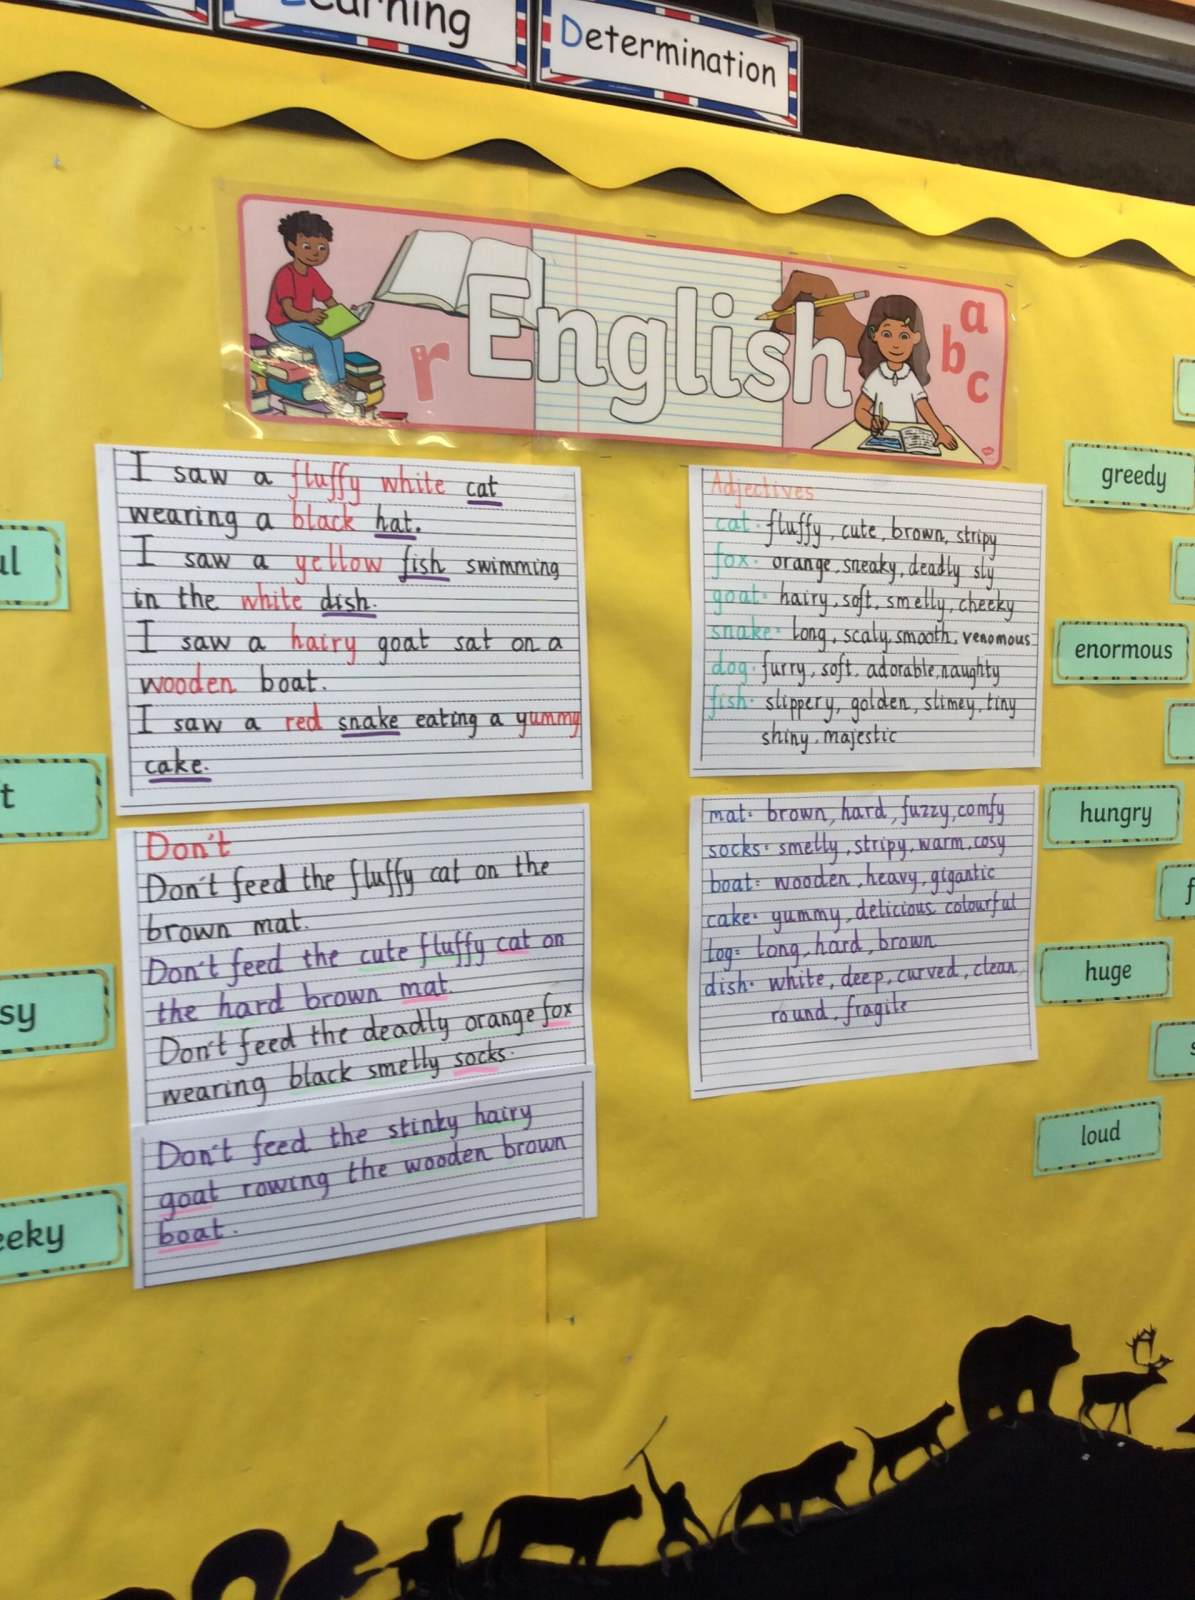 Learning
Determination
r English a b c
I saw a fluffy white cat
wearing a black hat.
I saw a yellow fish swimming
in the white dish.
I saw a hairy goat sat on a
wooden boat.
I saw a red snake eating a yummy
cake.
Don't
Don't feed the fluffy cat on the
brown mat.
Don't feed the cute fluffy cat on
the hard brown mat.
Don't feed the deadly orange fox
wearing black smelly socks.
Don't feed the stinky hairy
goat rowing the wooden brown
boat.
Adjectives
cat: fluffy, cute, brown, stripy
fox: orange, sneaky, deadly sly
goat: hairy, soft, smelly, cheeky
snake: long, scaly, smooth, venomous
dog: furry, soft, adorable, naughty
fish: slippery, golden, slimey, tiny
shiny, majestic
mat: brown, hard, fuzzy, comfy
socks: smelly, stripy, warm, cosy
boat: wooden, heavy, gigantic
cake: yummy, delicious, colourful
log: long, hard, brown
dish: white, deep, curved, clean,
round, fragile
greedy
enormous
hungry
huge
loud
ul
t
sy
eeky
f